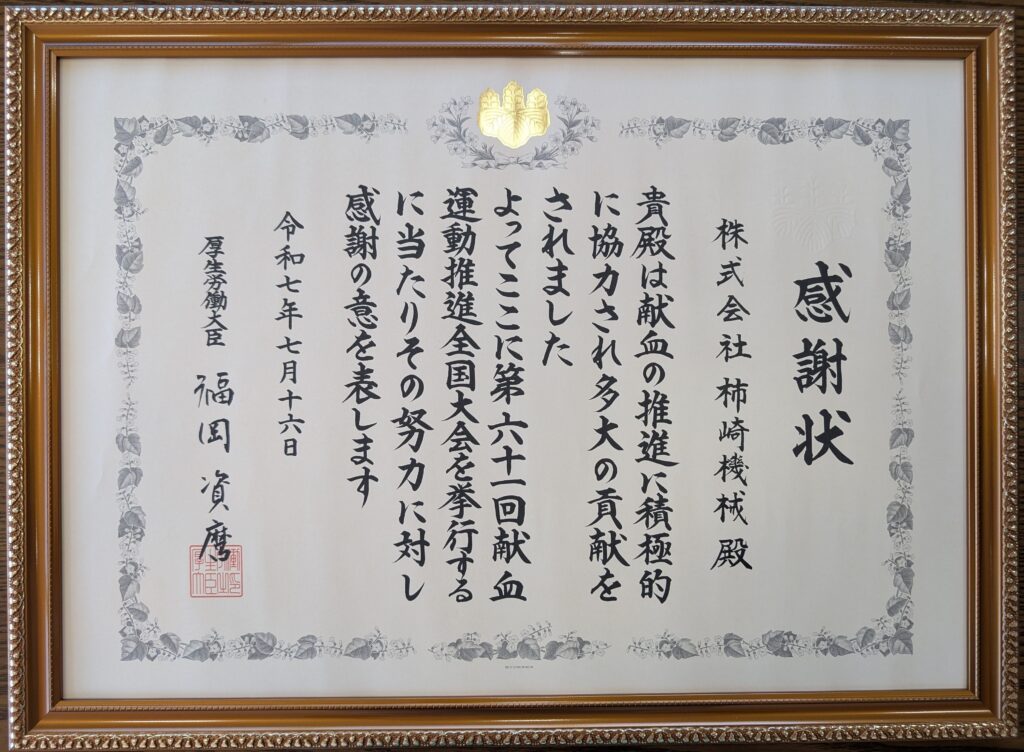 感謝状
株式会社 柿崎機械 殿
貴殿は献血の推進に積極的
に協力され多大の貢献を
されました
よってここに第六十一回献血
運動推進全国大会を挙行する
に当たりその努力に対し
感謝の意を表します
令和七年七月十六日
厚生労働大臣 福岡資麿